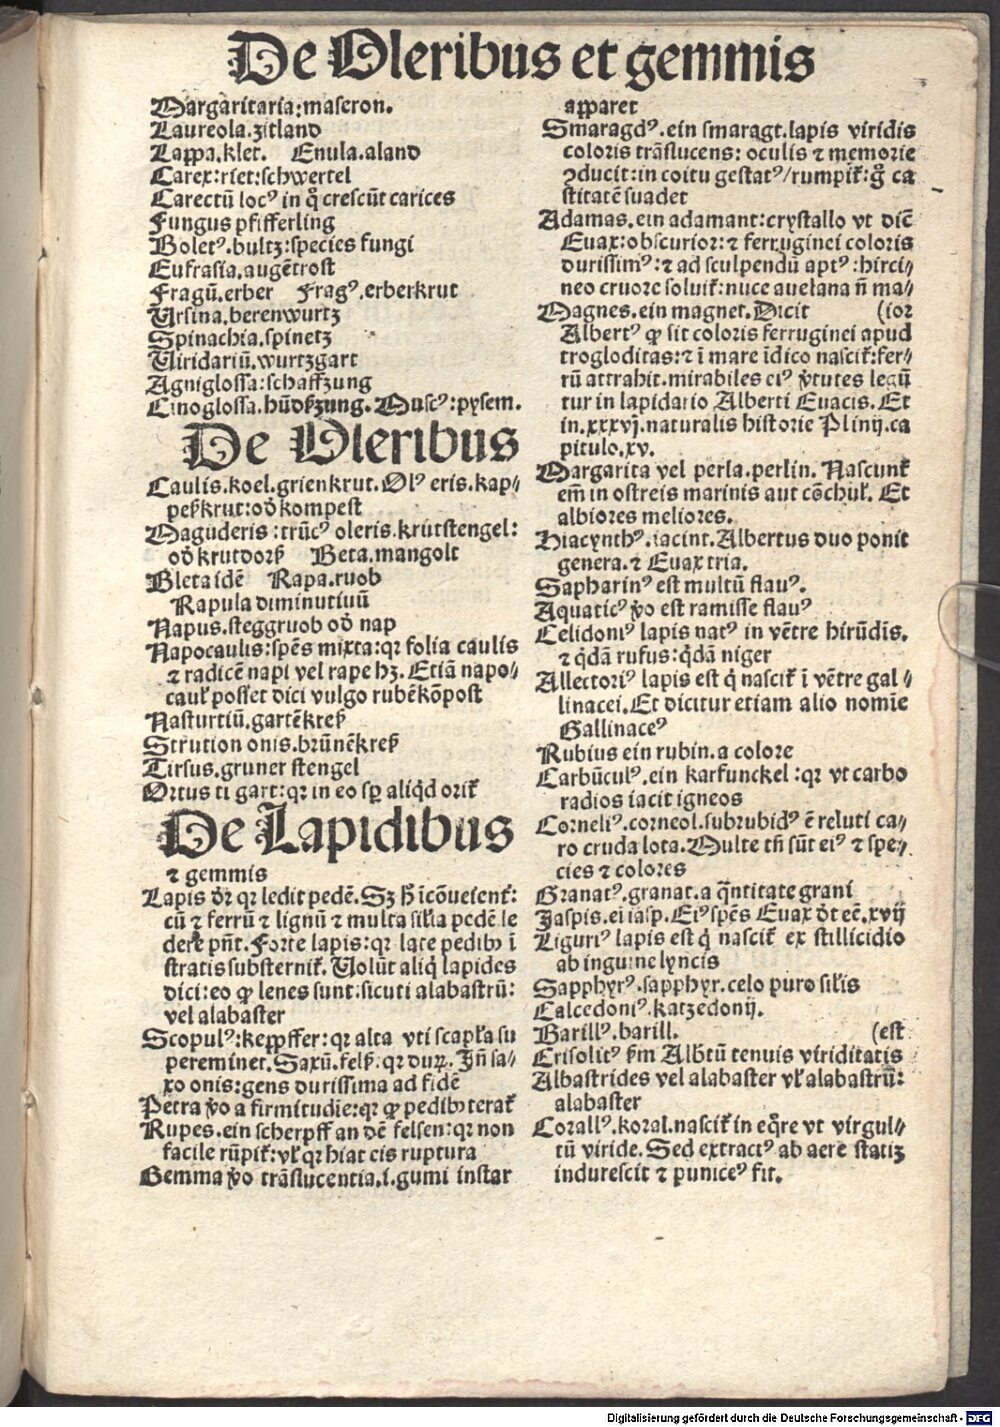 De Oleribus et gemmis
Margaritaria:maseron.
Laureola.zitland
Lappa.klet. Enula.aland
Carex:riet:schwertel
Carectū locꝰ in q̄ crescūt carices
Fungus pfifferling
Boletꝰ.bultz:species fungi
Eufrasia.augētrost
Fragū.erber Fragꝰ.erberkrut
Ursina.berenwurtz
Spinachia.spinetz
Uiridariū.wurtzgart
Agniglossa:schaffzung
Cinoglossa.hūdßzung. Muscꝰ:pysem.
De Oleribus
Caulis.koel.grienkrut. Olꝰ eris.kap⸗
peßkrut:od̓ kompest
Maguderis:trūcꝰ oleris.krutstengel:
od̓ krutdorß Beta.mangolt
Bleta idē Rapa.ruob
Rapula diminutiuū
Napus.steggruob od̓ nap
Napocaulis:spēs mixta:qꝛ folia caulis
⁊ radicē napi vel rape hꝫ. Etiā napo⸗
caul̓ posset dici vulgo rubēkōpost
Nasturtiū.gartēkreß
Strution onis.brūnēkreß
Tirsus.gruner stengel
Ortus ti gart:qꝛ in eo sꝑ aliqd orit᷑
De Lapidibus
⁊ gemmis
Lapis dr̄ qꝛ ledit pedē. Sꝫ h̓ īcōueient᷑:
cū ⁊ ferrū ⁊ lignū ⁊ multa sil̓ia pedē le
dere pn̄t. Forte lapis:qꝛ late pedibꝫ ī
stratis substernit᷑. Uolūt aliq̄ lapides
dici:eo ꝙ lenes sunt:sicuti alabastrū:
vel alabaster
Scopulꝰ:kepffer:qꝛ alta vti scapl̓a su
pereminet. Saxū.felß:qꝛ durꝫ. Jn̄ sa⸗
xo onis:gens durissima ad fidē
Petra v̓o a firmitudīe:qꝛ ꝙ pedibꝫ terat᷑
Rupes.ein scherpff an dē felsen:qꝛ non
facile rūpit᷑:vl̓ qꝛ hiat cis ruptura
Gemma v̓o trāslucentia.i.gumi instar
apparet
Smaragdꝰ.ein smaragt.lapis viridis
coloris trāslucens:oculis ⁊ memorie
ꝯducit:in coitu gestatꝰ/rumpit᷑:g̊ ca
stitatē suadet
Adamas.ein adamant:crystallo vt dic̄
Euax:obscurior:⁊ ferruginei coloris
durissimꝰ:⁊ ad sculpendū aptꝰ:hirci⸗
neo cruore soluit᷑:nuce auelana n̄ ma⸗
Magnes.ein magnet. Dicit (ior
Albertꝰ ꝙ sit coloris ferruginei apud
trogloditas:⁊ ī mare īdico nascit᷑:fer⸗
rū attrahit.mirabiles eiꝰ v̓tutes legū
tur in lapidario Alberti Euacis. Et
in.xxxvj.naturalis historie Plinij.ca
pitulo.xv.
Margarita vel perla.perlin. Nascunt᷑
em̄ in ostreis marinis aut cōchul̓. Et
albiores meliores.
Hiacynthꝰ.iacint. Albertus duo ponit
genera.⁊ Euax tria.
Sapharinꝰ est multū flauꝰ.
Aquaticꝰ v̓o est ramisse flauꝰ
Celidoniꝰ lapis natꝰ in vētre hirūdis.
⁊ q̄dā rufus:q̄dā niger
Allectoriꝰ lapis est q̄ nascit᷑ ī vētre gal⸗
linacei. Et dicitur etiam alio nomīe
Gallinaceꝰ
Rubius ein rubin.a colore
Carbūculꝰ.ein karfunckel:qꝛ vt carbo
radios iacit igneos
Corneliꝰ.corneol.subrubidꝰ ē reluti ca⸗
ro cruda lota. Multe tn̄ sūt eiꝰ ⁊ spe⸗
cies ⁊ colores
Granatꝰ.granat.a q̄ntitate grani
Jaspis.ei iasp. Eiꝰ spēs Euax dt̄ eē.xvij
Liguriꝰ lapis est q̄ nascit᷑ ex stillicidio
ab inguine lyncis
Sapphyrꝰ.sapphyr.celo puro sil̓is
Calcedoniꝰ.katzedonij.
Barillꝰ.barill. (est
Crisolitꝰ ẜm Alb̓tū tenuis viriditatis
Albastrides vel alabaster vl̓ alabastrū:
alabaster
Corallꝰ.koral.nascit᷑ in eq̄re vt virgul⸗
tū viride. Sed extractꝰ ab aere statiꝫ
indurescit ⁊ puniceꝰ fit.
Digitalisierung gefördert durch die Deutsche Forschungsgemeinschaft - DFG